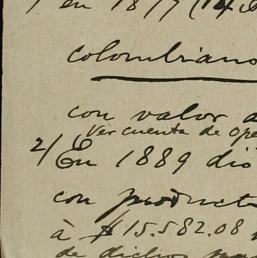 en 1877 (14
colombiano
con valor a
Ver cuenta de ope
2/ En 1889 dió
con product
à $15.582.08
de dichos